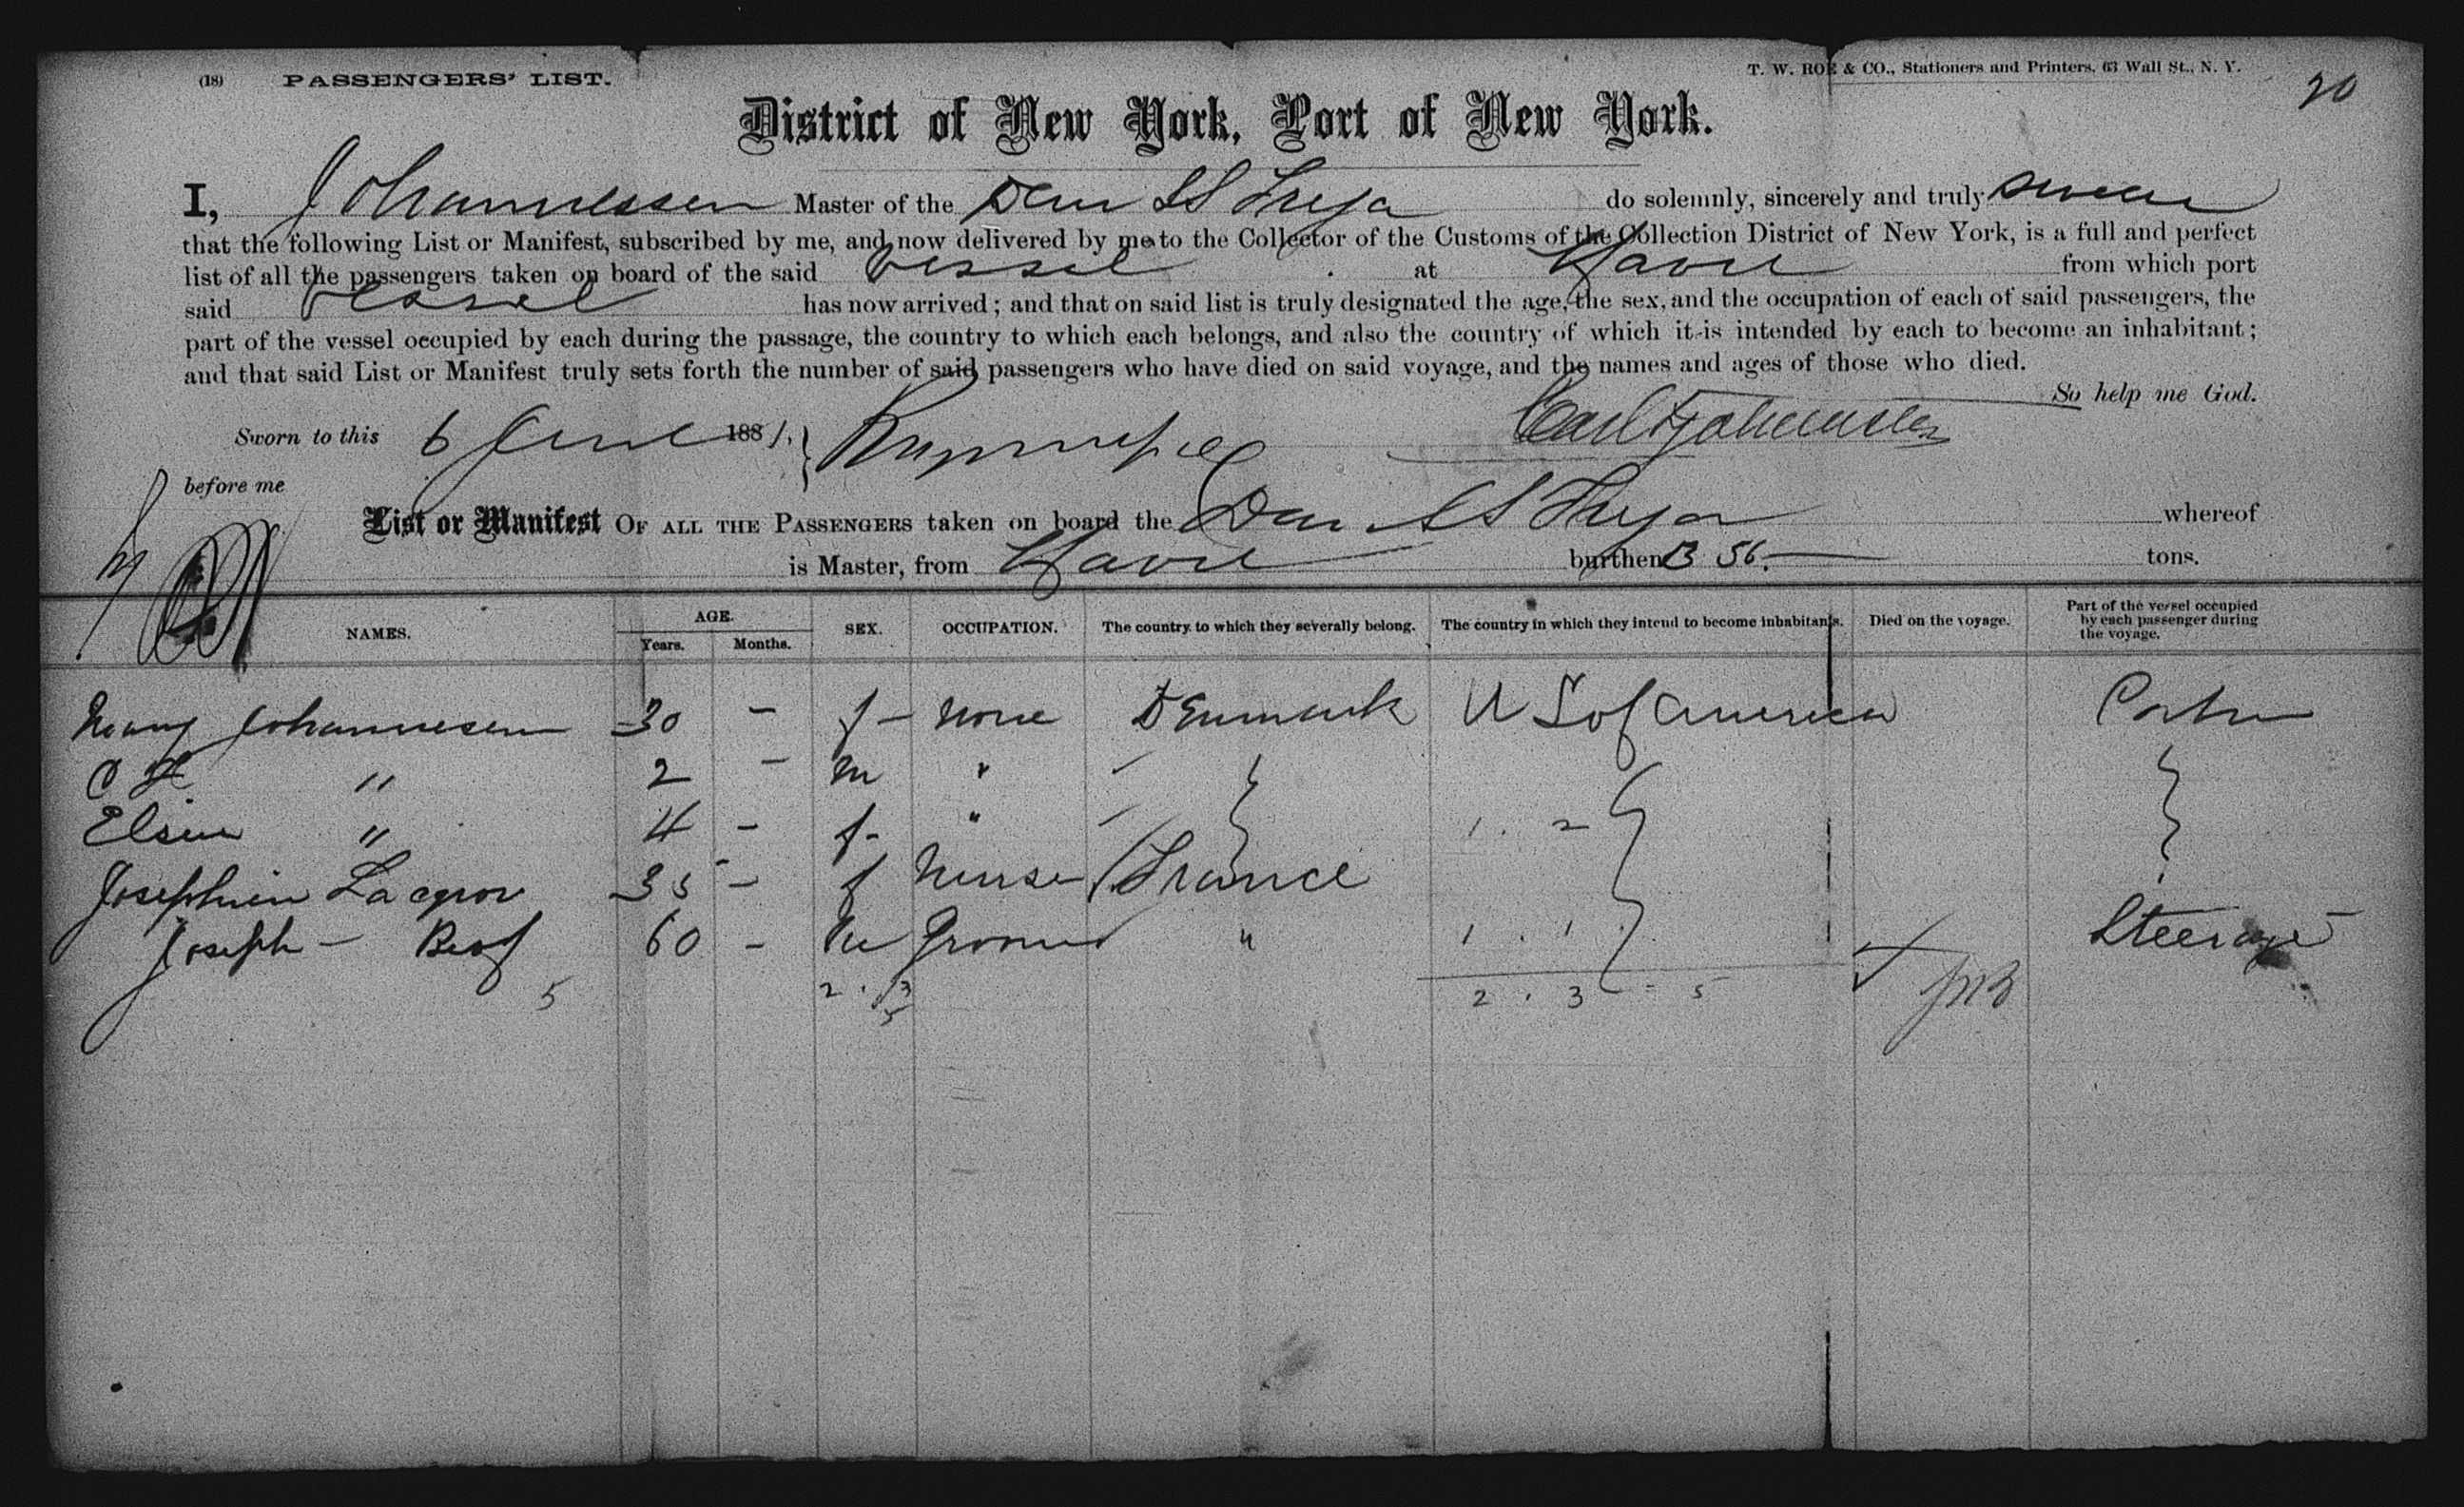 (18) PASSENGERS' LIST.
T. W. ROE & CO., Stationers and Printers, 63 Wall St., N. Y.
20
District of New York, Port of New York.
I, Johannessen Master of the Dan SS Freja do solemnly, sincerely and truly swear
that the following List or Manifest, subscribed by me, and now delivered by me to the Collector of the Customs of the Collection District of New York, is a full and perfect
list of all the passengers taken on board of the said vessel at Havre from which port
said vessel has now arrived; and that on said list is truly designated the age, the sex, and the occupation of each of said passengers, the
part of the vessel occupied by each during the passage, the country to which each belongs, and also the country of which it is intended by each to become an inhabitant;
and that said List or Manifest truly sets forth the number of said passengers who have died on said voyage, and the names and ages of those who died.
So help me God.
Sworn to this 6 June 1881,
before me
List or Manifest OF ALL THE PASSENGERS taken on board the Dan SS Freja whereof
is Master, from Havre burthen 1356. tons.
NAMES. AGE. Years. Months. SEX. OCCUPATION. The country to which they severally belong. The country in which they intend to become inhabitants. Died on the voyage. Part of the vessel occupied by each passenger during the voyage.
Johannesen 30 - f - None Denmark U S of America
2 - m "
" 4 - f - "
35 - f Nurse France
Joseph - 60 - m Groom " 1 . 1 Steerage
5 2 . 3 2 . 3 - 5
5